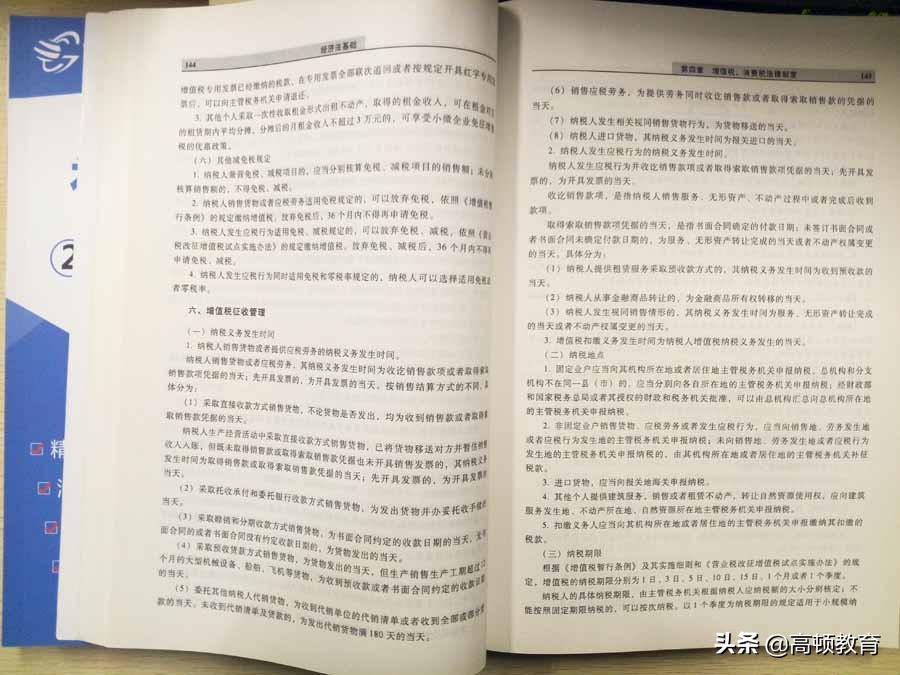 144
经济法基础
增值税专用发票已经缴纳的税款,在专用发票全部联次追回或者按规定开具红字专用发
票后,可以向主管税务机关申请退还。
3. 其他个人采取一次性收取租金形式出租不动产,取得的租金收入,可在租金对应
的租赁期内平均分摊,分摊后的月租金收入不超过 3 万元的,可享受小微企业免征增值
税的优惠政策。
(六)其他减免税规定
1. 纳税人兼营免税、减税项目的,应当分别核算免税、减税项目的销售额;未分别
核算销售额的,不得免税、减税。
2. 纳税人销售货物或者应税劳务适用免税规定的,可以放弃免税,依照《增值税暂
行条例》的规定缴纳增值税。放弃免税后,36 个月内不得再申请免税。
3. 纳税人发生应税行为适用免税、减税规定的,可以放弃免税、减税,依照《营业
税改征增值税试点实施办法》的规定缴纳增值税。放弃免税、减税后,36 个月内不得再
申请免税、减税。
4. 纳税人发生应税行为同时适用免税和零税率规定的,纳税人可以选择适用免税或
者零税率。
六、增值税征收管理
(一)纳税义务发生时间
1. 纳税人销售货物或者提供应税劳务的纳税义务发生时间。
纳税人销售货物或者应税劳务,其纳税义务发生时间为收讫销售款或者取得索取
销售款项凭据的当天;先开具发票的,为开具发票的当天。按销售结算方式的不同,具
体分为:
(1)采取直接收款方式销售货物,不论货物是否发出,均为收到销售款或者取得索
取销售款凭据的当天。
纳税人生产经营活动中采取直接收款方式销售货物,已将货物移送对方并暂估销售
收入入账,但既未取得销售款或取得索取销售款凭据也未开具销售发票的,其纳税义务
发生时间为取得销售款或取得索取销售款凭据的当天;先开具发票的,为开具发票的
当天。
(2)采取托收承付和委托银行收款方式销售货物,为发出货物并办妥托收手续的
当天。
(3)采取赊销和分期收款方式销售货物,为书面合同约定的收款日期的当天,无书
面合同的或者书面合同没有约定收款日期的,为货物发出的当天。
(4)采取预收货款方式销售货物,为货物发出的当天,但生产销售生产工期超过12
个月的大型机械设备、船舶、飞机等货物,为收到预收款或者书面合同约定的收款日期
的当天。
(5)委托其他纳税人代销货物,为收到代销单位的代销清单或者收到全部或部分货
款的当天。未收到代销清单及货款的,为发出代销货物满 180 天的当天。
第四章 增值税、消费税法律制度
145
(6)销售应税劳务,为提供劳务同时收讫销售款或者取得索取销售款的凭据的
当天。
(7)纳税人发生相关视同销售货物行为,为货物移送的当天。
(8)纳税人进口货物,其纳税义务发生时间为报关进口的当天。
2. 纳税人发生应税行为的纳税义务发生时间。
纳税人发生应税行为并收讫销售款项或者取得索取销售款项凭据的当天;先开具发
票的,为开具发票的当天。
收讫销售款项,是指纳税人销售服务、无形资产、不动产过程中或者完成后收到
款项。
取得索取销售款项凭据的当天,是指书面合同确定的付款日期;未签订书面合同或
者书面合同未确定付款日期的,为服务、无形资产转让完成的当天或者不动产权属变更
的当天。具体分为:
(1)纳税人提供租赁服务采取预收款方式的,其纳税义务发生时间为收到预收款的
当天。
(2)纳税人从事金融商品转让的,为金融商品所有权转移的当天。
(3)纳税人发生视同销售情形的,其纳税义务发生时间为服务、无形资产转让完成
的当天或者不动产权属变更的当天。
3. 增值税扣缴义务发生时间为纳税人增值税纳税义务发生的当天。
(二)纳税地点
1. 固定业户应当向其机构所在地或者居住地主管税务机关申报纳税。总机构和分支
机构不在同一县(市)的,应当分别向各自所在地的主管税务机关申报纳税;经财政部
和国家税务总局或者其授权的财政和税务机关批准,可以由总机构汇总向总机构所在地
的主管税务机关申报纳税。
2. 非固定业户销售货物、应税劳务或者发生应税行为,应当向销售地、劳务发生地
或者应税行为发生地的主管税务机关申报纳税;未向销售地、劳务发生地或者应税行为
发生地的主管税务机关申报纳税的,由其机构所在地或者居住地的主管税务机关补征
税款。
3. 进口货物,应当向报关地海关申报纳税。
4. 其他个人提供建筑服务,销售或者租赁不动产,转让自然资源使用权,应向建筑
服务发生地、不动产所在地、自然资源所在地主管税务机关申报纳税。
5. 扣缴义务人应当向其机构所在地或者居住地的主管税务机关申报缴纳其扣缴的
税款。
(三)纳税期限
根据《增值税暂行条例》及其实施细则和《营业税改征增值税试点实施办法》的规
定,增值税的纳税期限分别为 1 日、3 日、5 日、10 日、15 日、1 个月或者 1 个季度。
纳税人的具体纳税期限,由主管税务机关根据纳税人应纳税额的大小分别核定;不
能按照固定期限纳税的,可以按次纳税。以 1 个季度为纳税期限的规定适用于小规模纳
2
精
头条 @高顿教育